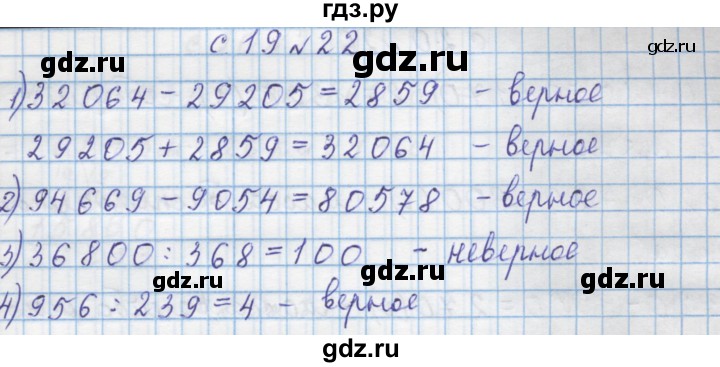 гдз.ру
с 19 № 22
gdz.ru gdz.ru gdz.ru
1) 32064 - 29205 = 2859 - верное
29205 + 2859 = 32064 - верное
gdz.ru gdz.ru
2) 94669 - 9054 = 80578 - верное
gdz.ru gdz.ru
3) 36800 : 368 = 100 - неверное
gdz.ru gdz.ru
4) 956 : 239 = 4 - верное
gdz.ru gdz.ru
gdz.ru